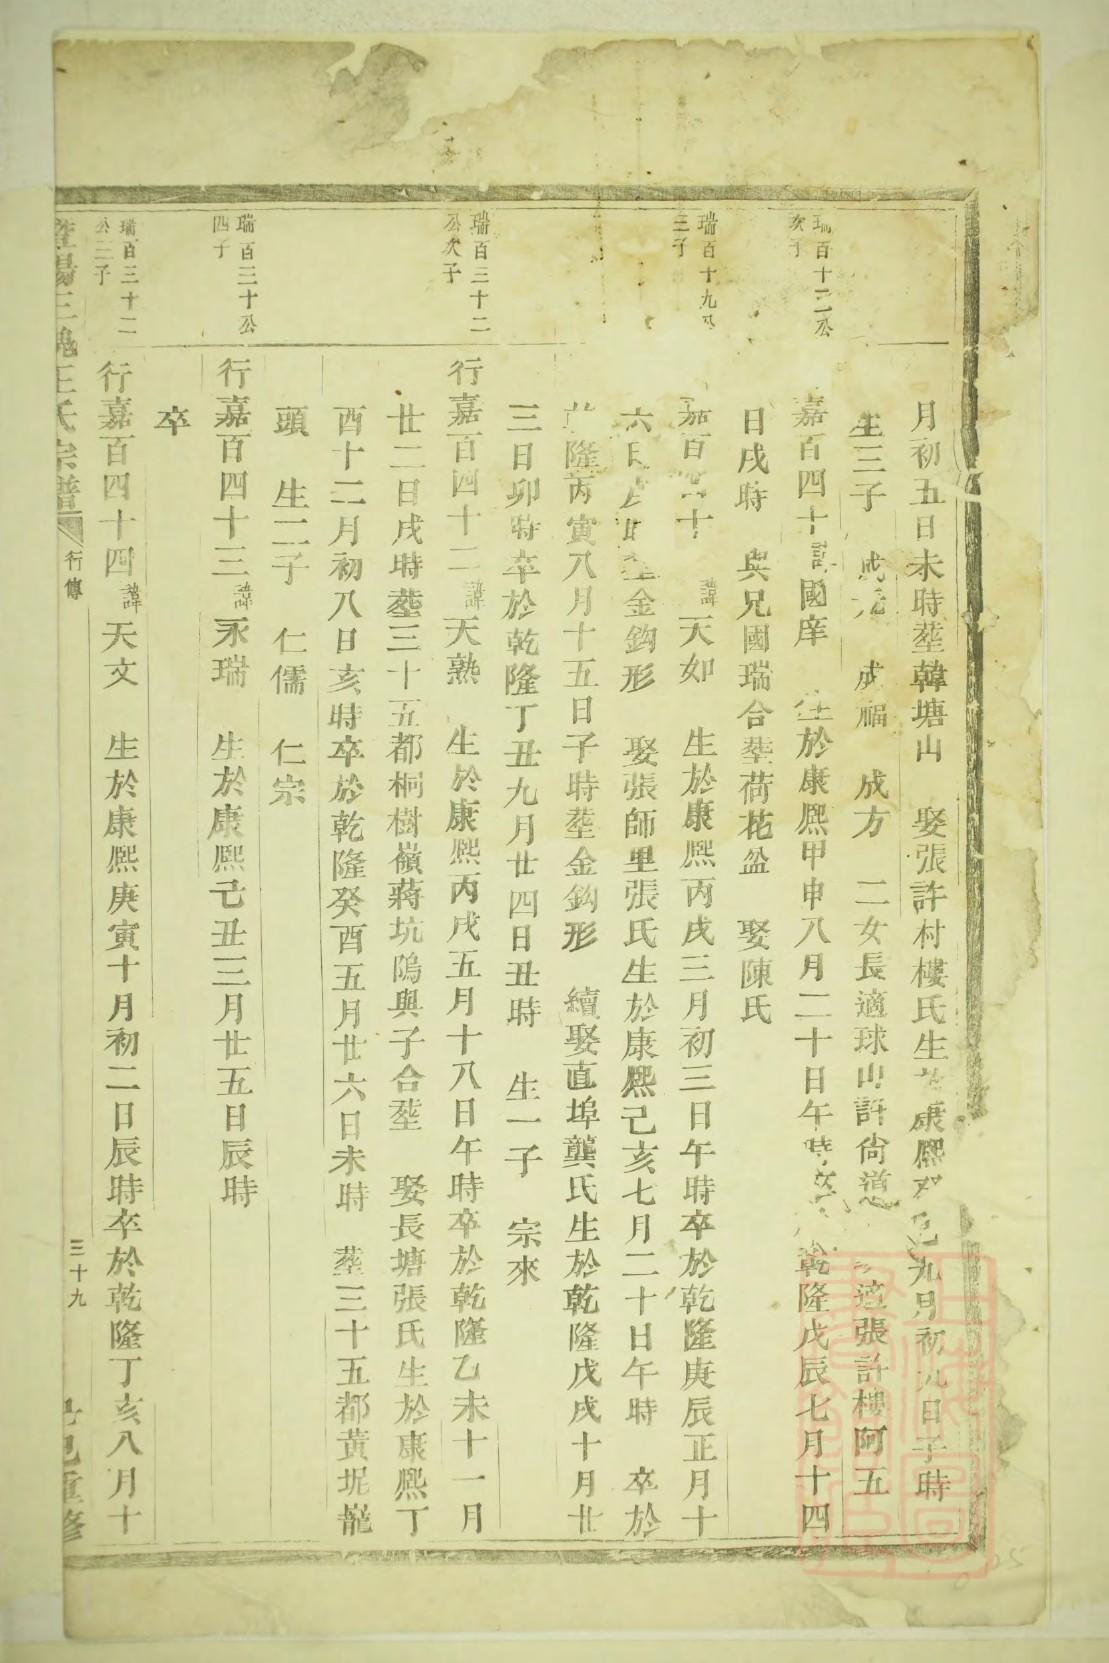 月初五日未時塟韓塘山 娶張許村樓氏生於康熙 巳九月初九日子時
生三子 成福 成方 二女長適球山許尙道 適張許樓阿五
瑞百十二公次子
嘉百四十諱國庠 生於康熙甲申八月二十日午時卒 乾隆戊辰七月十四
日戌時 與兄國瑞合塟荷花盆 娶陳氏
瑞百十九公三子
嘉百四十 諱天如 生於康熙丙戌三月初三日午時卒於乾隆庚辰正月十
六日 時塟金鈎形 娶張師里張氏生於康熙己亥七月二十日午時 卒於
乾隆丙寅八月十五日子時塟金鈎形 續娶直埠龔氏生於乾隆戊戌十月廿
三日卯時卒於乾隆丁丑九月廿四日丑時 生一子 宗來
瑞百三十二公次子
行嘉百四十二諱天熟 生於康熙丙戌五月十八日午時卒於乾隆乙未十一月
廿二日戌時塟三十五都桐樹嶺蔣坑隖與子合塟 娶長塘張氏生於康熙丁
酉十二月初八日亥時卒於乾隆癸酉五月廿六日未時 塟三十五都黃坭巃
頭 生二子 仁儒 仁宗
瑞百三十公四子
行嘉百四十三諱永瑞 生於康熙己丑三月廿五日辰時
卒
瑞百三十二公三子
行嘉百四十四諱天文 生於康熙庚寅十月初二日辰時卒於乾隆丁亥八月十
暨陽三槐王氏宗譜 行傳 三十九 重修